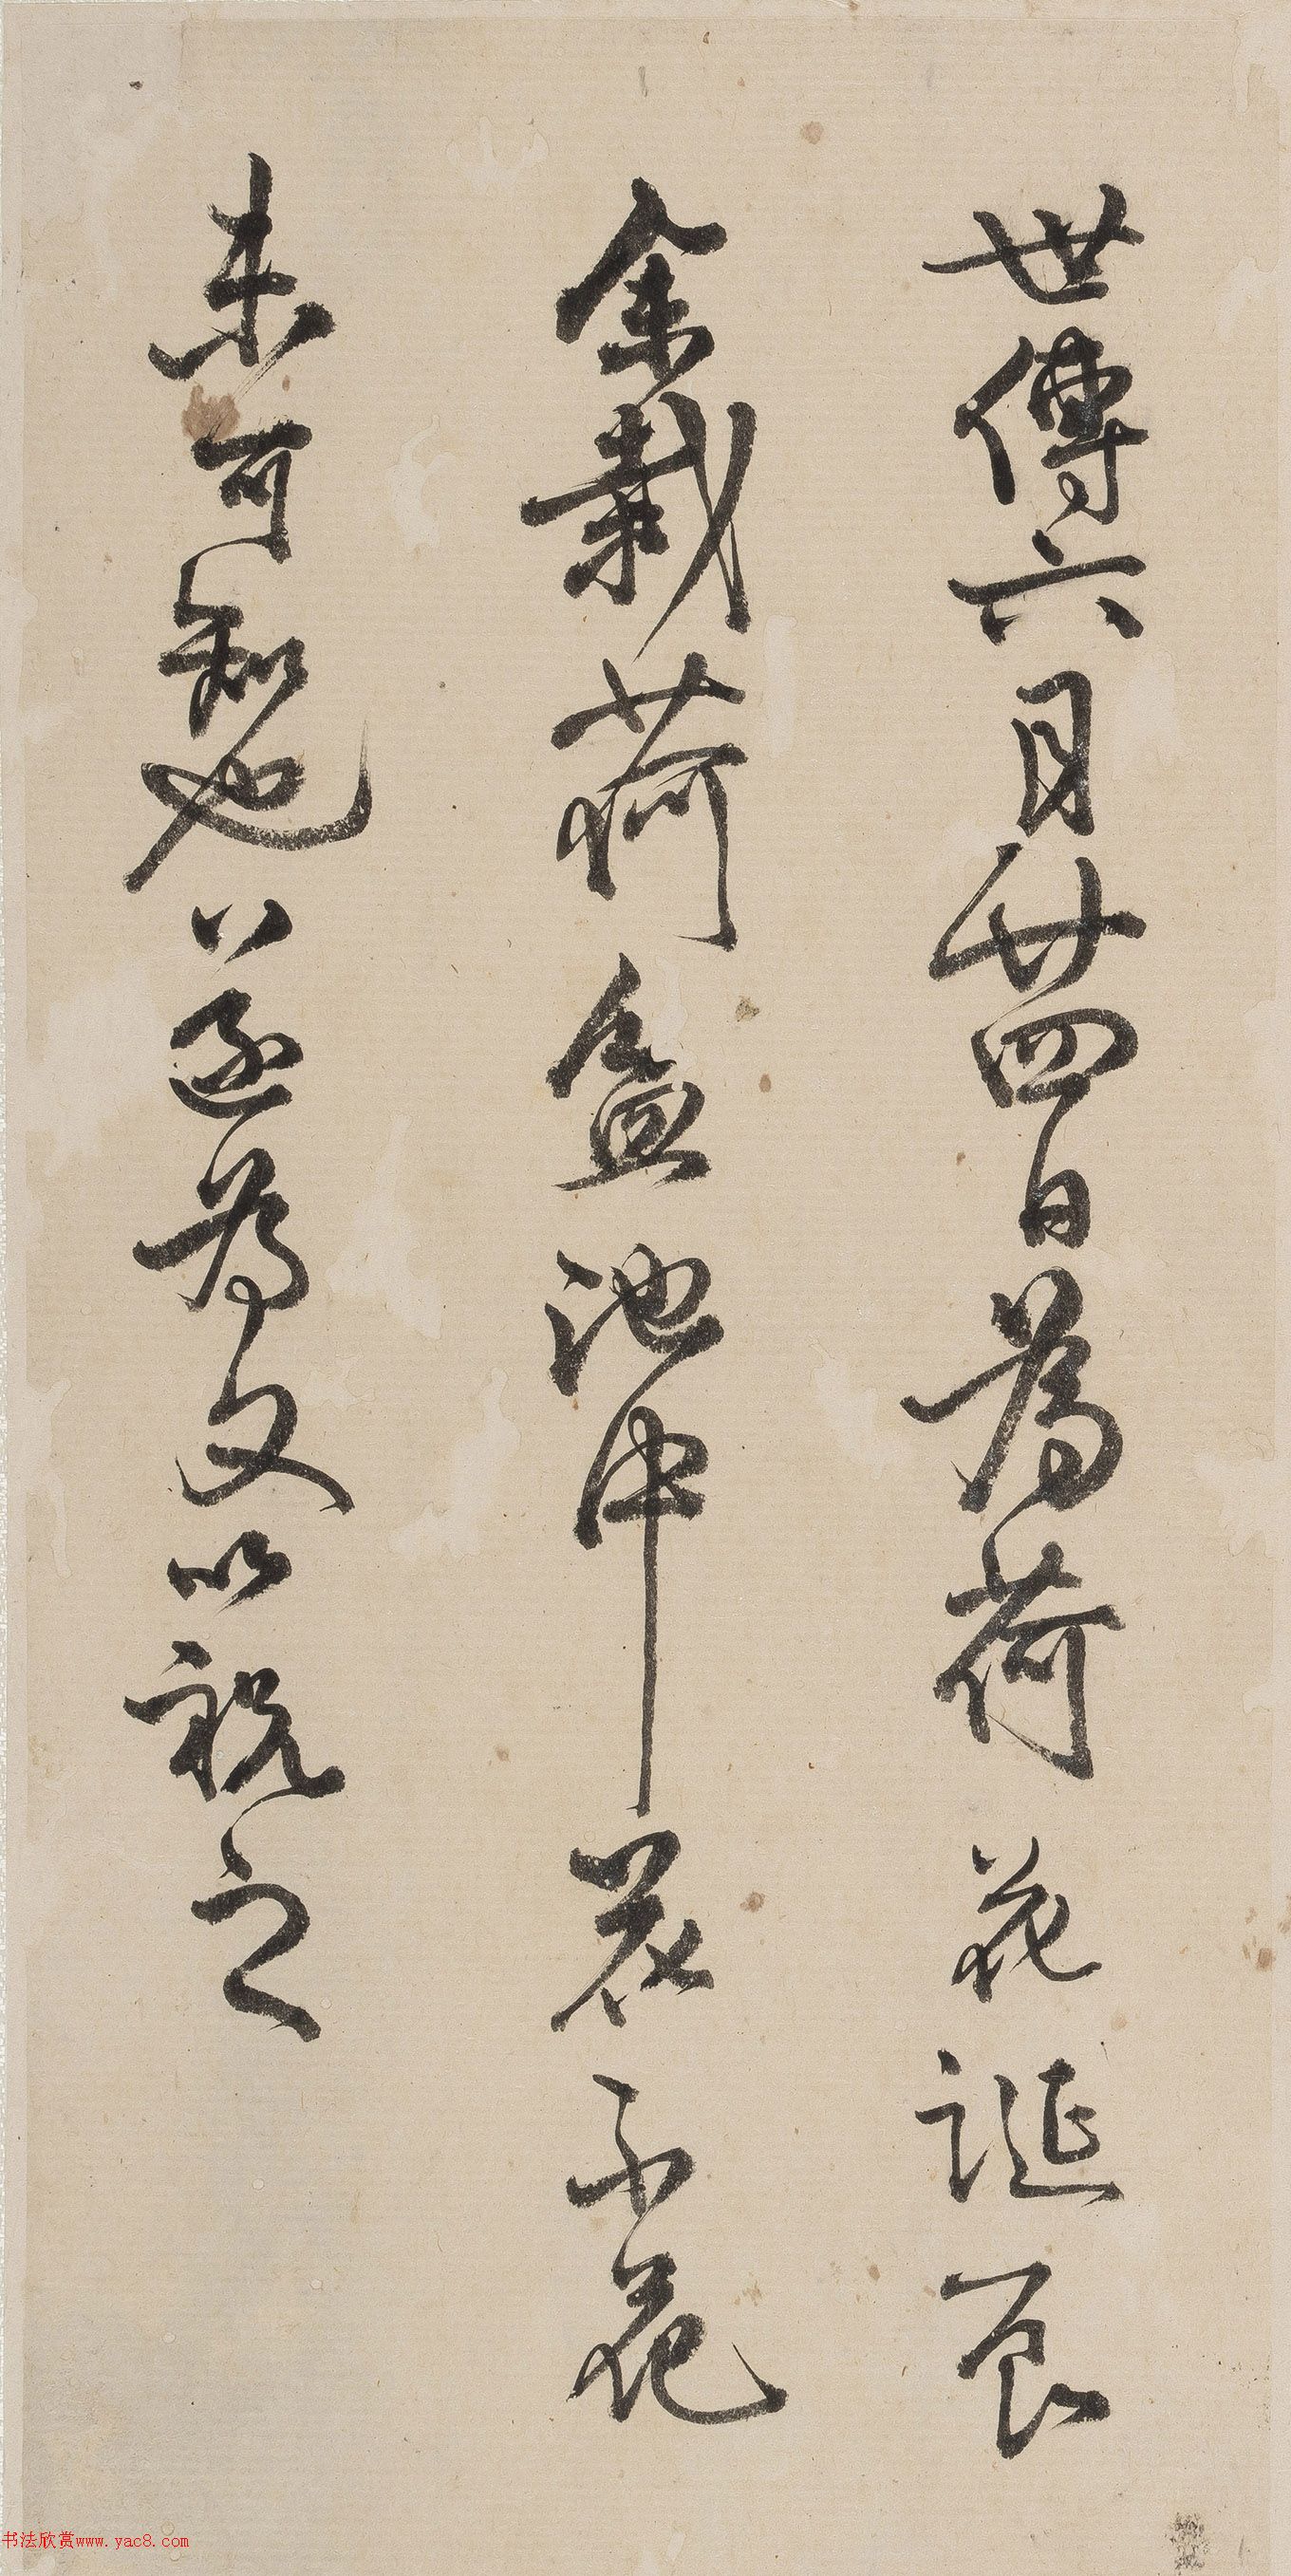 世傳六月廿四日為荷花誕辰
余栽荷盆池中花不花
未可知也遂為文以祝之
书法欣赏www.yac8.com